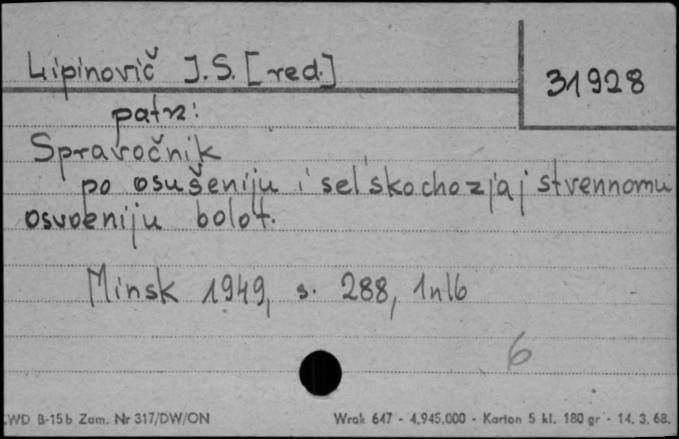 Lipinovič J.S. [red.]
31928
patrz:
Spravočnik
po osušeniju i sel'skochozjajstvennomu
osvoeniju bolot.
Minsk 1949, s. 288, 1nlb
6
WD B-15b Zam. Nr 317/DW/ON
Wrak 647 - 4.945.000 - Karton 5 kl. 180 gr - 14. 3. 68.